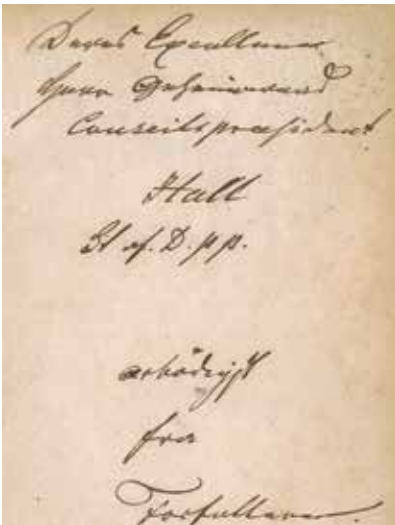 Deres Excellence
Herr Geheimeraad
Conseilspræsident
Hall
St af. D. p p.
ærbödigst
fra
Forfatteren.